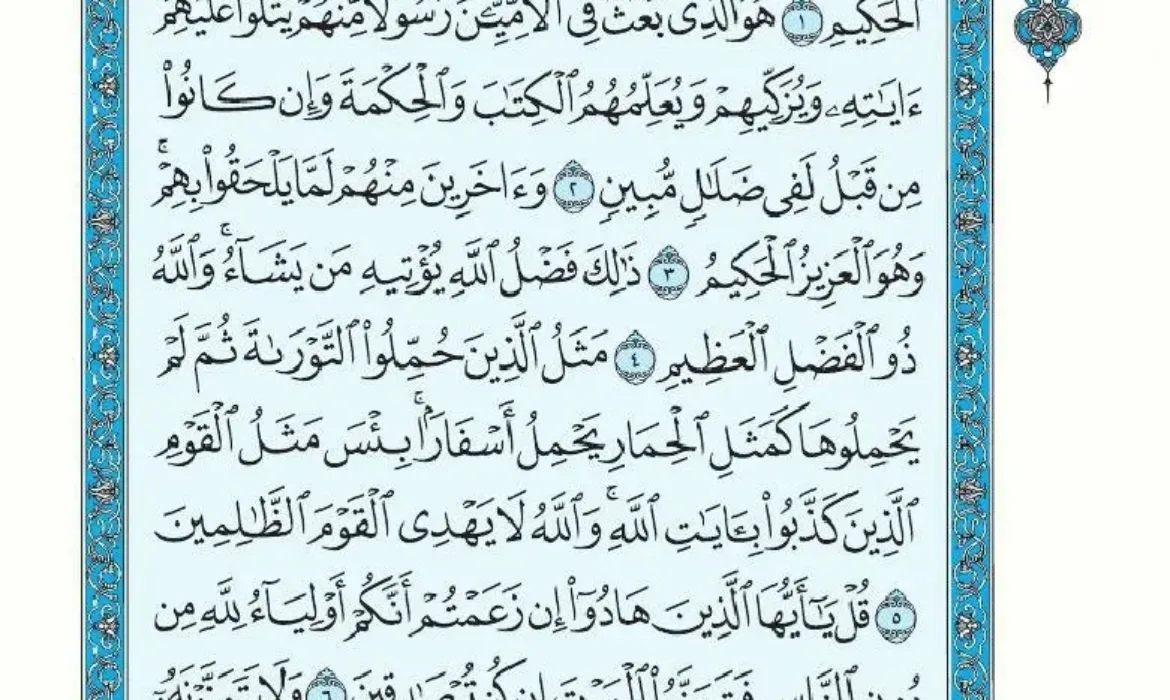 ٱلۡحَكِيمِ ١ هُوَ ٱلَّذِي بَعَثَ فِي ٱلۡأُمِّيِّـۧنَ رَسُولٗا مِّنۡهُمۡ يَتۡلُواْ عَلَيۡهِمۡ
ءَايَٰتِهِۦ وَيُزَكِّيهِمۡ وَيُعَلِّمُهُمُ ٱلۡكِتَٰبَ وَٱلۡحِكۡمَةَ وَإِن كَانُواْ
مِن قَبۡلُ لَفِي ضَلَٰلٖ مُّبِينٖ ٢ وَءَاخَرِينَ مِنۡهُمۡ لَمَّا يَلۡحَقُواْ بِهِمۡۚ
وَهُوَ ٱلۡعَزِيزُ ٱلۡحَكِيمُ ٣ ذَٰلِكَ فَضۡلُ ٱللَّهِ يُؤۡتِيهِ مَن يَشَآءُۚ وَٱللَّهُ
ذُو ٱلۡفَضۡلِ ٱلۡعَظِيمِ ٤ مَثَلُ ٱلَّذِينَ حُمِّلُواْ ٱلتَّوۡرَىٰةَ ثُمَّ لَمۡ
يَحۡمِلُوهَا كَمَثَلِ ٱلۡحِمَارِ يَحۡمِلُ أَسۡفَارَۢاۚ بِئۡسَ مَثَلُ ٱلۡقَوۡمِ
ٱلَّذِينَ كَذَّبُواْ بِـَٔايَٰتِ ٱللَّهِۚ وَٱللَّهُ لَا يَهۡدِي ٱلۡقَوۡمَ ٱلظَّٰلِمِينَ
٥ قُلۡ يَٰٓأَيُّهَا ٱلَّذِينَ هَادُوٓاْ إِن زَعَمۡتُمۡ أَنَّكُمۡ أَوۡلِيَآءُ لِلَّهِ مِن
دُونِ ٱلنَّاسِ فَتَمَنَّوُاْ ٱلۡمَوۡتَ إِن كُنتُمۡ صَٰدِقِينَ ٦ وَلَا يَتَمَنَّوۡنَهُۥٓ